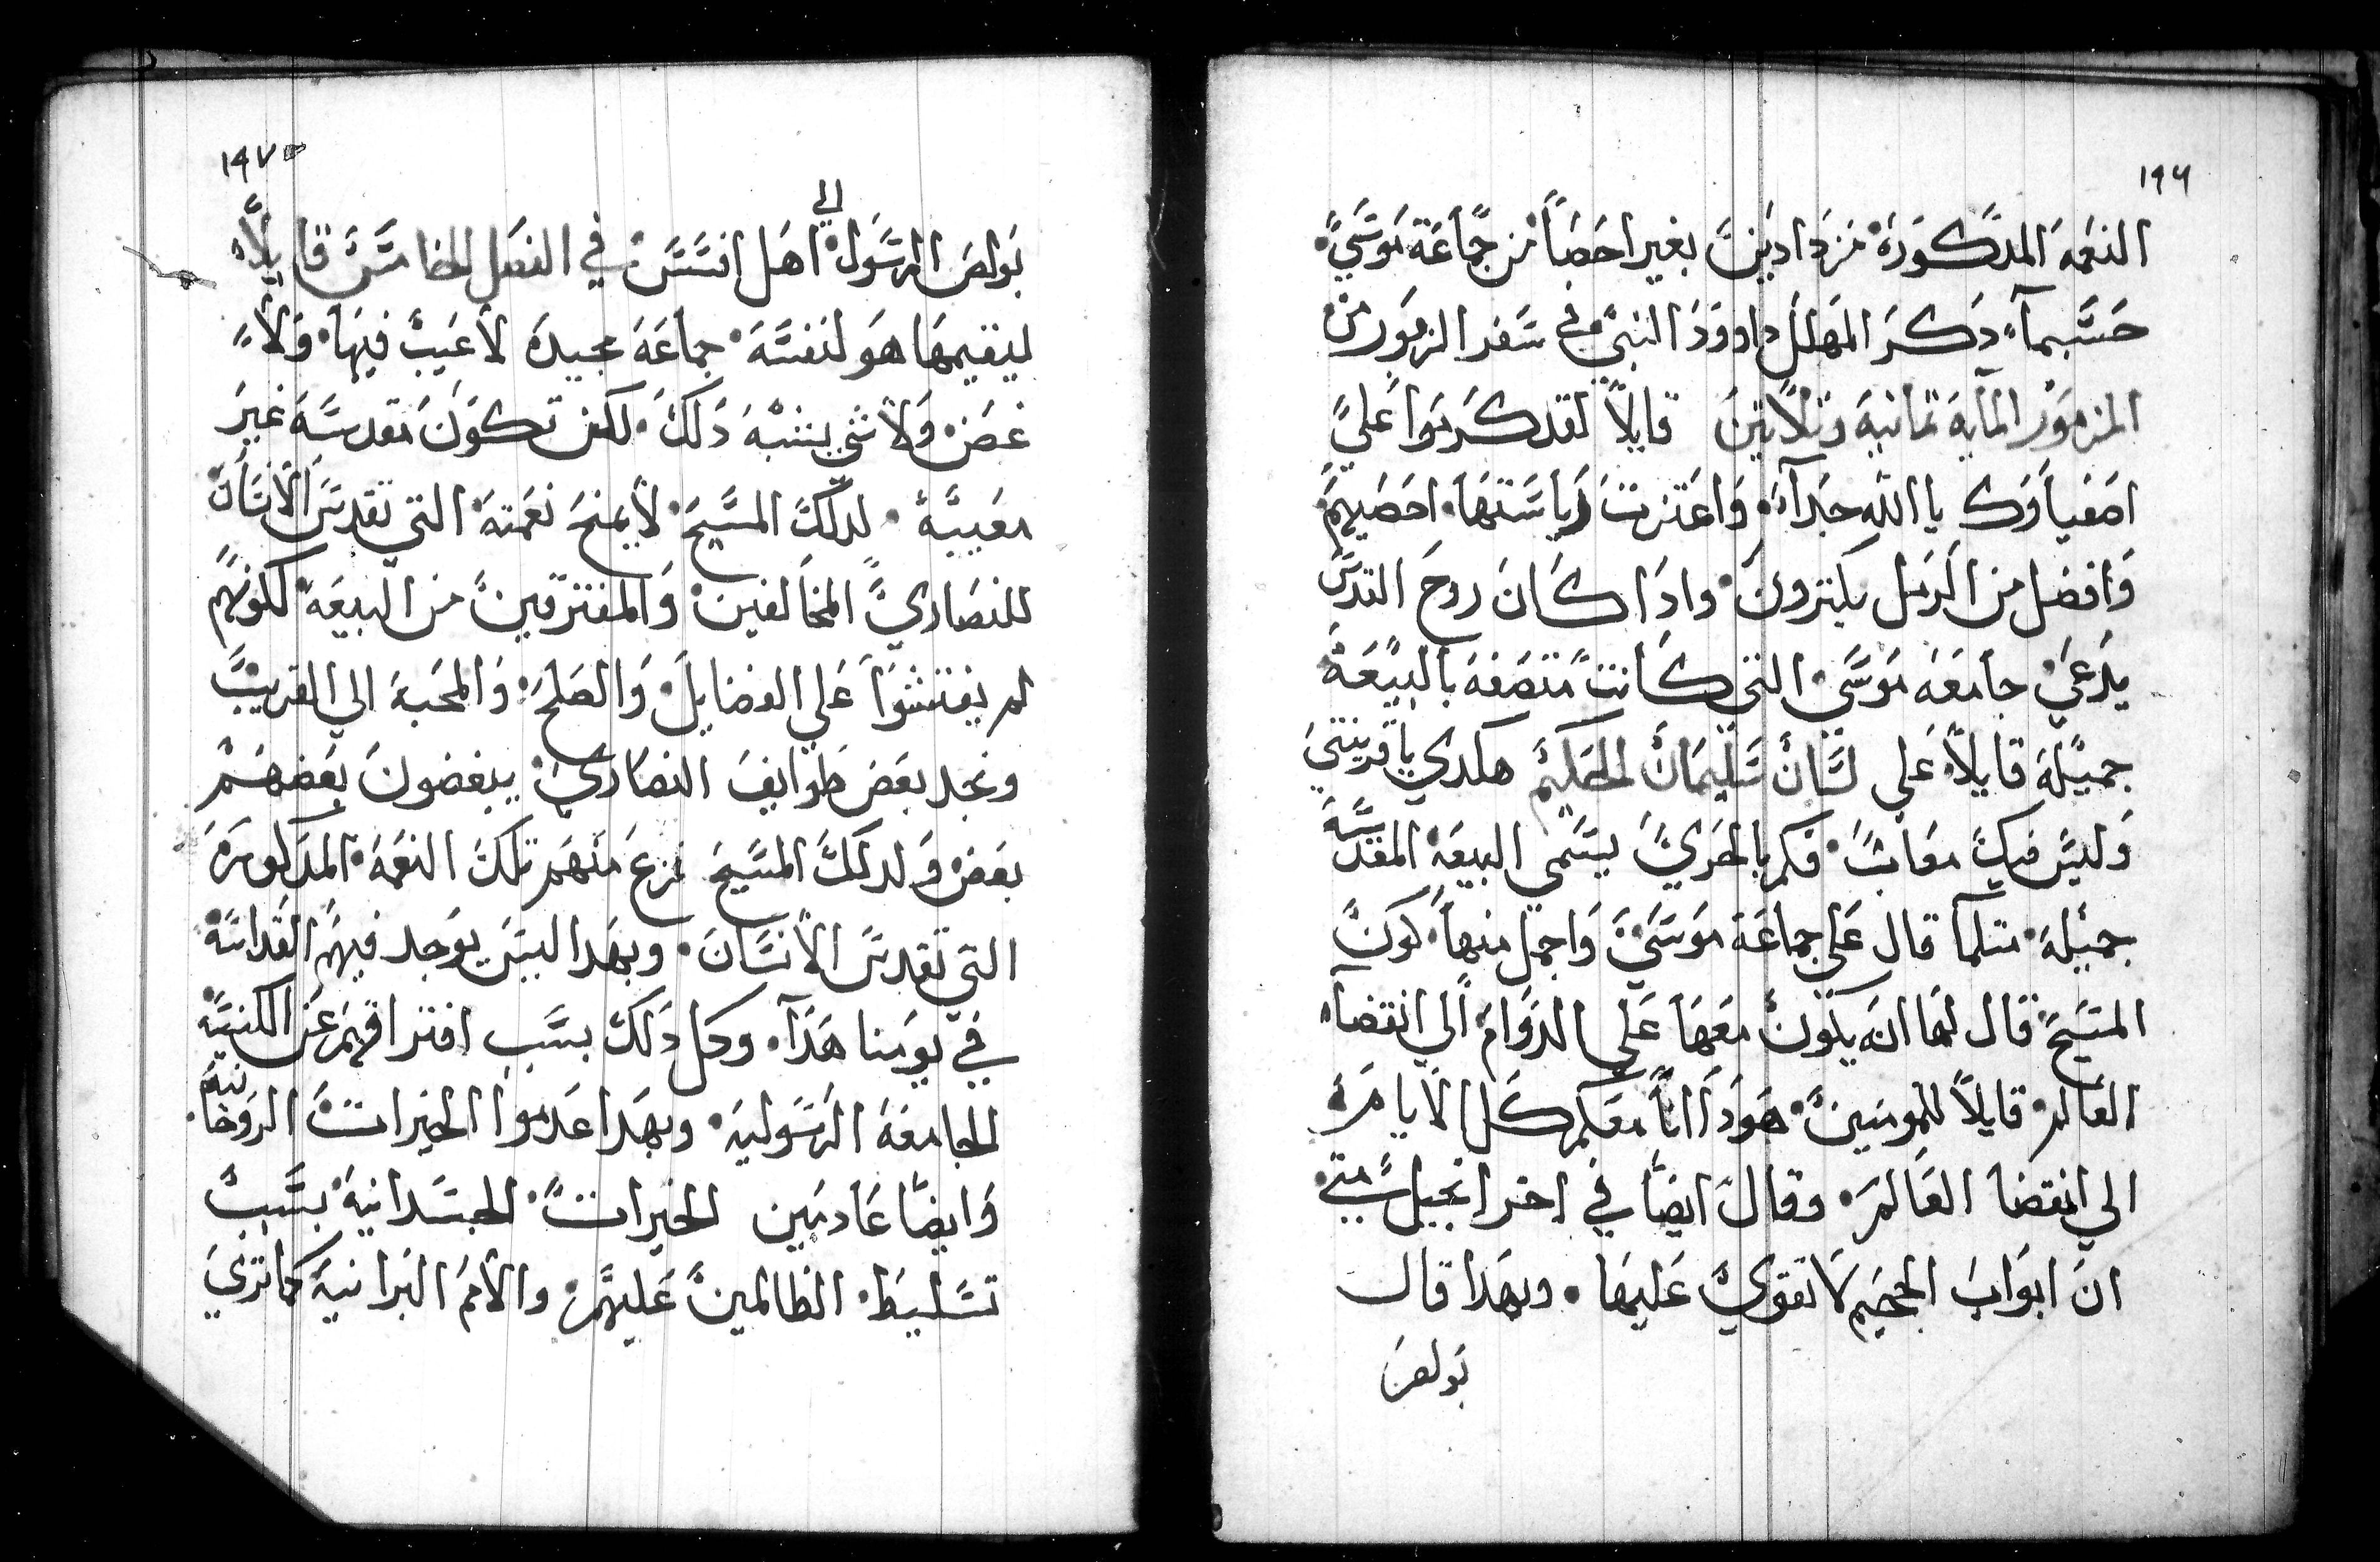 ١٩٦
النعمه المدكوره مزدادين بغير احصا من جماعة موسي
حسبما دكر المهلل داوود النبي في سفر الزمور من
المزمور المايه تمانيه وتلاتين قايلا لقد كرموا علي
اصفياوك يا الله جدا واعتزت رياستها احصيهم
وافضل من الرمل يكترون وادا كان روح القدس
يدعي جامعه موسي التي كانت متصفه بالبيعة
جميلة قايلا علي لسان سليمان الحكيم هكدي يا قرينتي
وليس فيك معاب فكم بالحري يسمي البيعه المقدسه
جميله متلما قال علي جماعة موسي واجمل منها كون
المسيح قال لها انه يكون معها علي الدوام الي انقضا
العالم قايلا للمومنين هودا انا معكم كل الايام
الي انقضا العالم وقال ايضا في اخر انجيل متي
ان ابواب الجحيم لا تقوي عليها وبهدا قال
بولص
١٩٧
بولص الرسول الي اهل افسس في الفصل الخامس قايلا
ليقيمها هو لنفسه جماعة مجيده لا عيب فيها ولا
غض ولا شي يشبه دلك لكن تكون مقدسه غير
معيبة لدلك المسيح لا يمنح نعمته التي تقدس الانسان
للنصاري المخالفين والمفترقين من البيعه لكونهم
لم يفتشوا علي الفضايل والصلح والمحبة الي القريب
ونجد بعض طوايف النصاري يبغضون بعضهم
بعض ولدلك المسيح نزع منهم تلك النعمه المدكوره
التي تقدس الانسان وبهدا ليس يوجد فيهم القداسه
في يومنا هدا وكل دلك بسبب افتراقهم عن الكنيسه
الجامعه الرسوليه وبهدا عدموا الخيرات الروحانيه
وايضا عادمين الخيرات الجسدانيه بسبب
تسليط الظالمين عليهم والامم البرانية كما تري